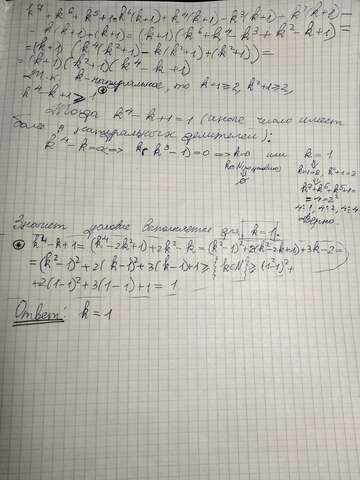 k⁷ + k⁶ + k⁵ + 1 = k⁶(k+1) + k⁴(k+1) - k³(k+1) + k²(k+1) -
- k(k+1) + (k+1) = (k+1)(k⁶ + k⁴ - k³ + k² - k + 1) =
= (k+1)(k⁴(k²+1) - k(k²+1) + (k²+1)) =
= (k+1)(k²+1)(k⁴ - k + 1)
Т.к. k - натуральное, то k+1 ≥ 2, k²+1 ≥ 2,
k⁴ - k + 1 ≥ 1 ⊛
Тогда k⁴ - k + 1 = 1 (иначе число имеет
более натуральных делителей):
k⁴ - k = 0 => k(k³ - 1) = 0 => k=0 или k = 1
k+1=2, k²+1=2
k⁷+k⁶+k⁵+1=
= 4 = 2²
4:1, 4:2, 4:4
верно.
Значит условие выполняется для k = 1.
⊛ k⁴ - k + 1 = (k⁴ - 2k² + 1) + 2k² - k = (k² - 1)² + 2(k² - 2k + 1) + 3k - 2 =
= (k² - 1)² + 2(k - 1)² + 3(k - 1) + 1 ≥ {k∈N} ≥ (1² - 1)² +
+ 2(1-1)² + 3(1-1) + 1 = 1
Ответ: k = 1